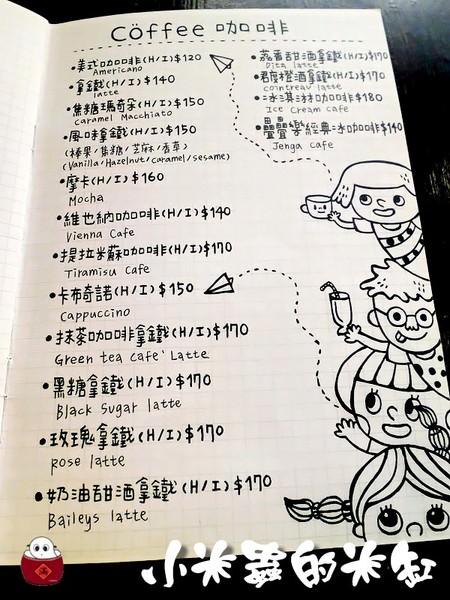 Coffee 咖啡
•美式咖啡(H/I)$120
Americano
•拿鐵(H/I)$140
latte
•焦糖瑪奇朵(H/I)$150
caramel Macchiato
•風味拿鐵(H/I)$150
(榛果/焦糖/芝麻/香草)
(Vanilla/Hazelnut/caramel/sesame)
•摩卡(H/I)$160
Mocha
•維也納咖啡(H/I)$140
Vienna Cafe
•提拉米蘇咖啡(H/I)$170
Tiramisu Cafe
•卡布奇諾(H/I)$150
Cappuccino
•抹茶咖啡拿鐵(H/I)$170
Green tea Cafe' Latte
•黑糖拿鐵(H/I)$170
Black Sugar latte
•玫瑰拿鐵(H/I)$170
Rose latte
•奶油甜酒拿鐵(H/I)$170
Baileys latte
•荔香甜酒拿鐵(H/I)$170
Dita latte
•君度橙酒拿鐵(H/I)$170
cointreau latte
•冰淇淋咖啡$180
Ice Cream cafe
•疊疊樂經典冰咖啡$140
Jenga Cafe
小米蟲的米缸